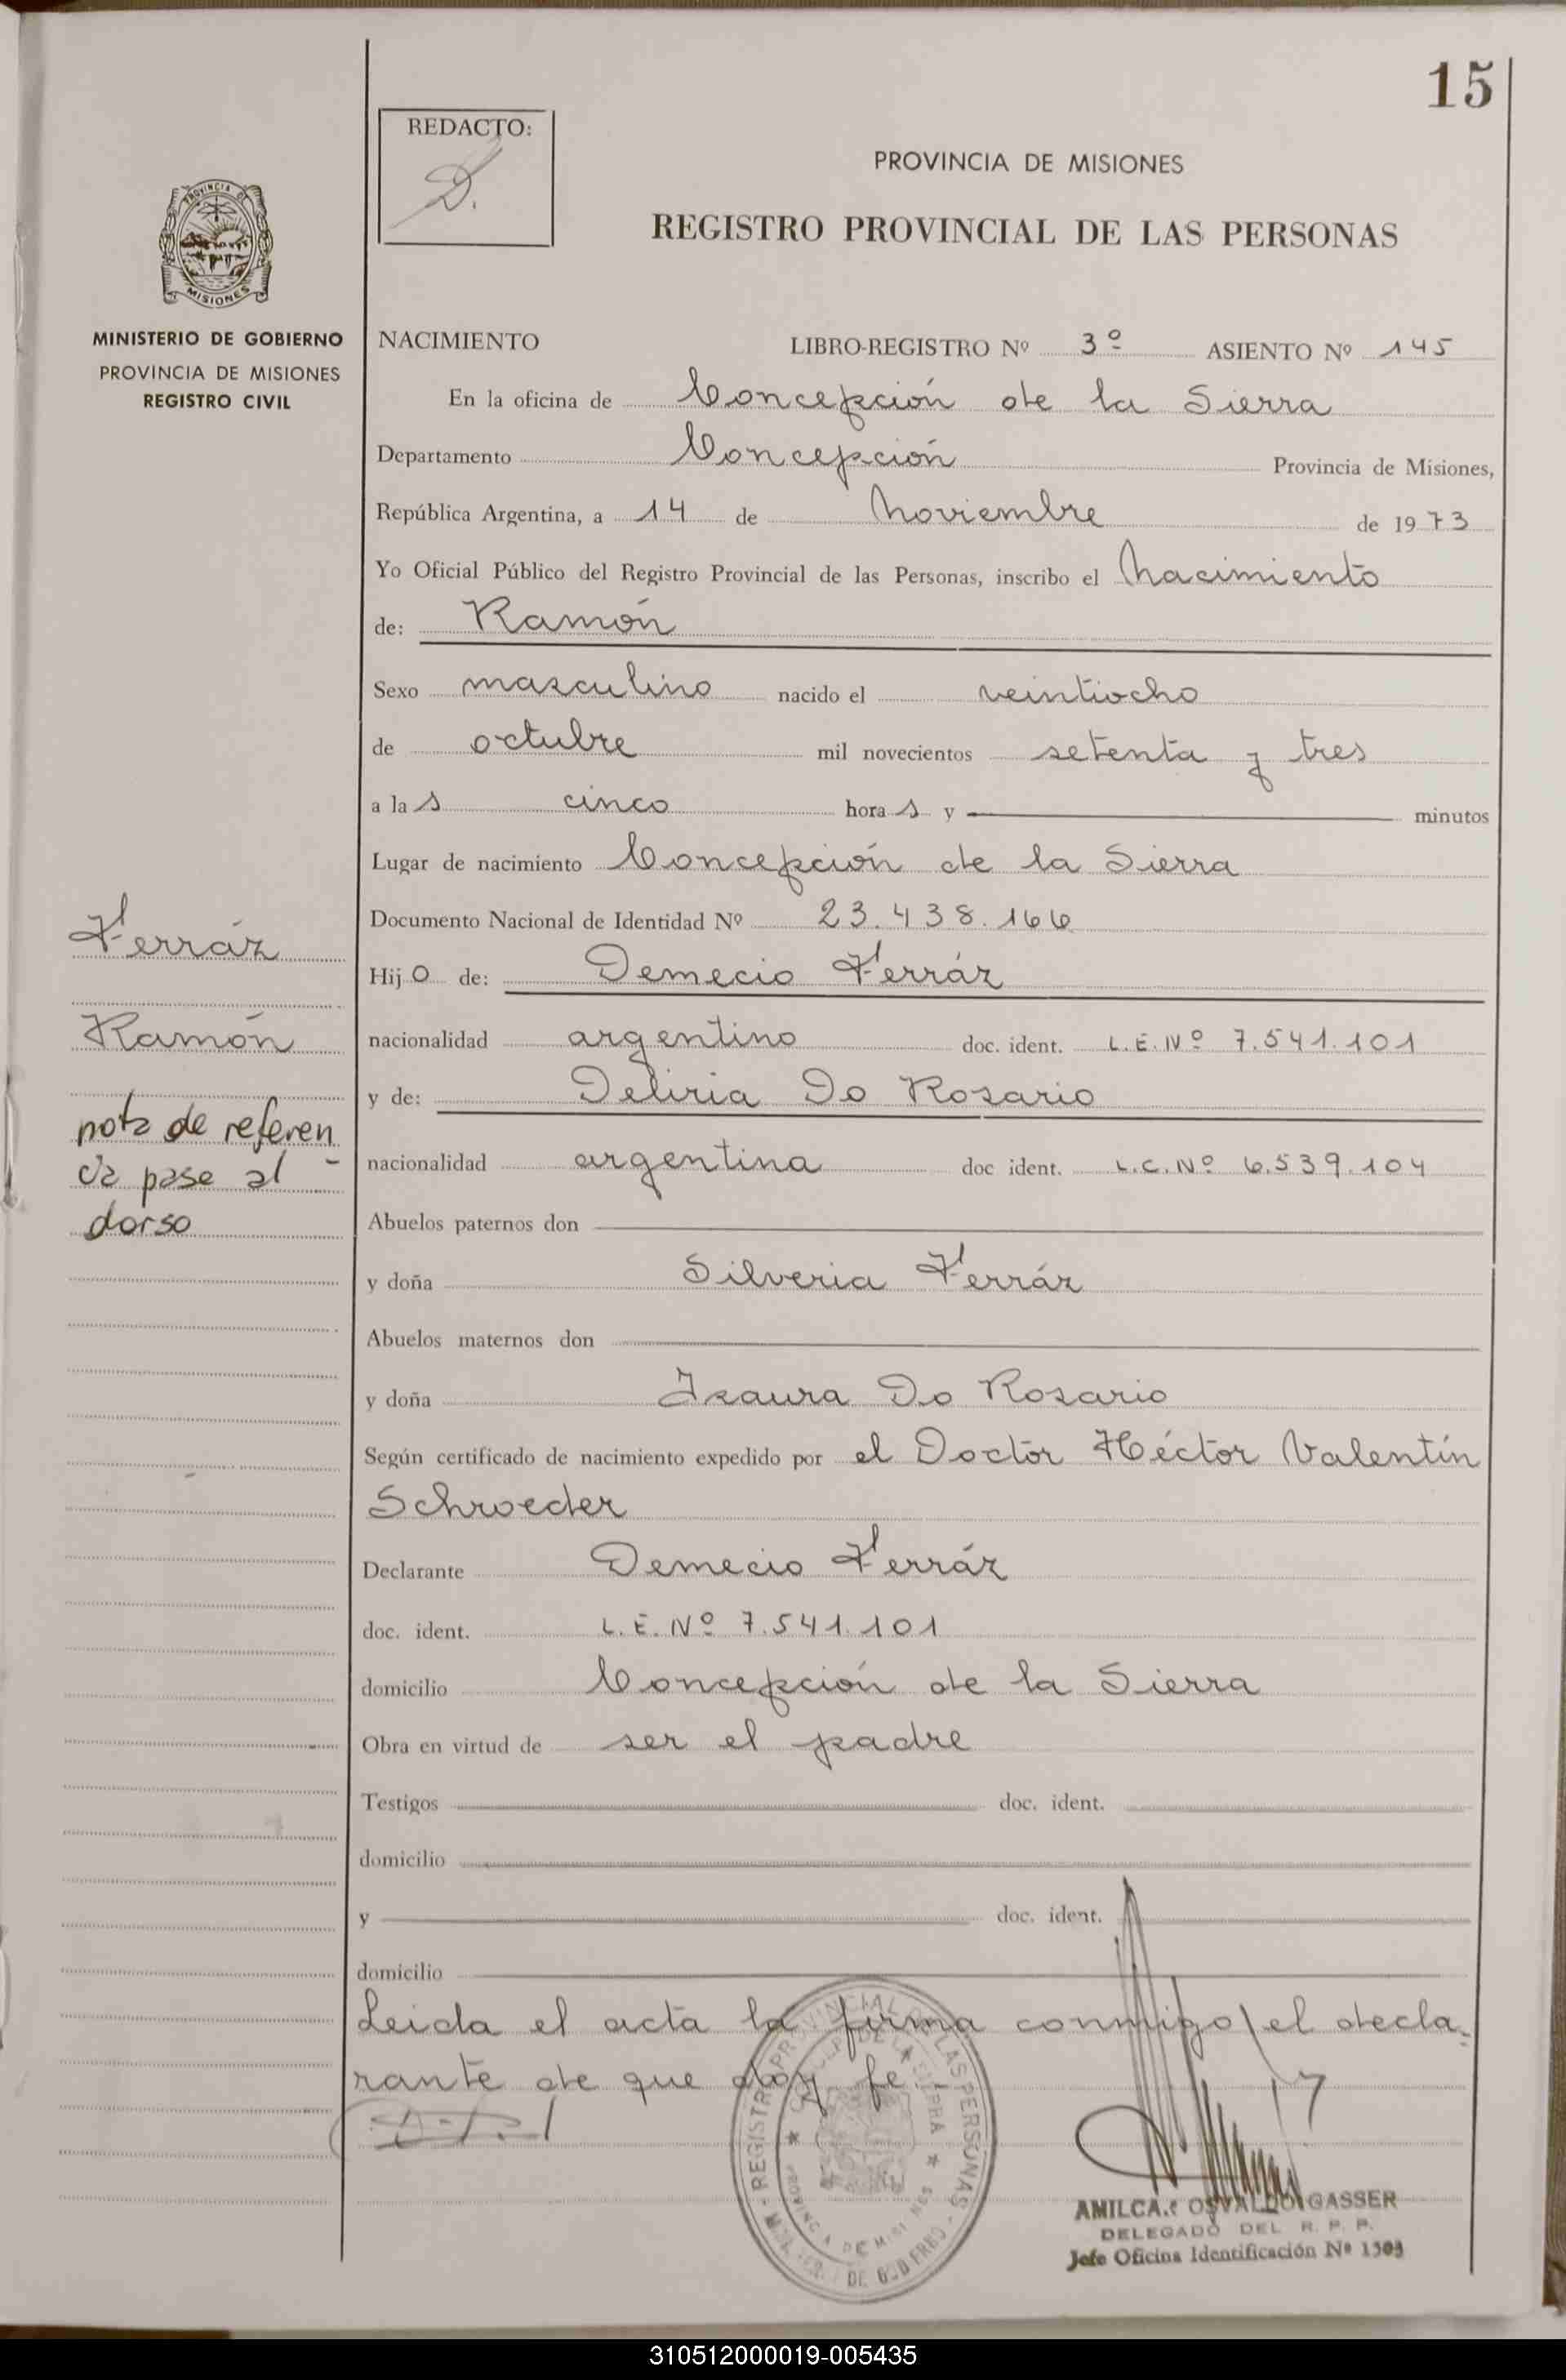 15
REDACTO:
D.
PROVINCIA DE MISIONES
REGISTRO PROVINCIAL DE LAS PERSONAS
PROVINCIA DE
MISIONES
MINISTERIO DE GOBIERNO
PROVINCIA DE MISIONES
REGISTRO CIVIL
NACIMIENTO LIBRO-REGISTRO Nº 3º ASIENTO Nº 145
En la oficina de Concepción de la Sierra
Departamento Concepción Provincia de Misiones,
República Argentina, a 14 de Noviembre de 1973
Yo Oficial Público del Registro Provincial de las Personas, inscribo el Nacimiento
de: Ramón
Sexo masculino nacido el veintiocho
de octubre mil novecientos setenta y tres
a la s cinco hora s y minutos
Lugar de nacimiento Concepción de la Sierra
Documento Nacional de Identidad Nº 23.438.166
Hij o de: Demecio Ferráz
nacionalidad argentino doc. ident. L.E.Nº 7.541.101
y de: Deliria Do Rosario
nacionalidad argentina doc ident. L.C.Nº 6.539.104
Abuelos paternos don
y doña Silveria Ferráz
Abuelos maternos don
y doña Isaura Do Rosario
Según certificado de nacimiento expedido por el Doctor Héctor Valentín
Schroeder
Declarante Demecio Ferráz
doc. ident. L.E.Nº 7.541.101
domicilio Concepción de la Sierra
Obra en virtud de ser el padre
Testigos doc. ident.
domicilio
y doc. ident.
domicilio
Leida el acta la firma conmigo el decla-
rante de que doy fe.-
Ferráz
Ramón
nota de referen-
cia pase al
dorso
REGISTRO PROVINCIAL DE LAS PERSONAS
PROVINCIA DE MISIONES
AMILCAR OSVALDO GASSER
DELEGADO DEL R. P. P.
Jefe Oficina Identificación Nº 1503
310512000019-005435